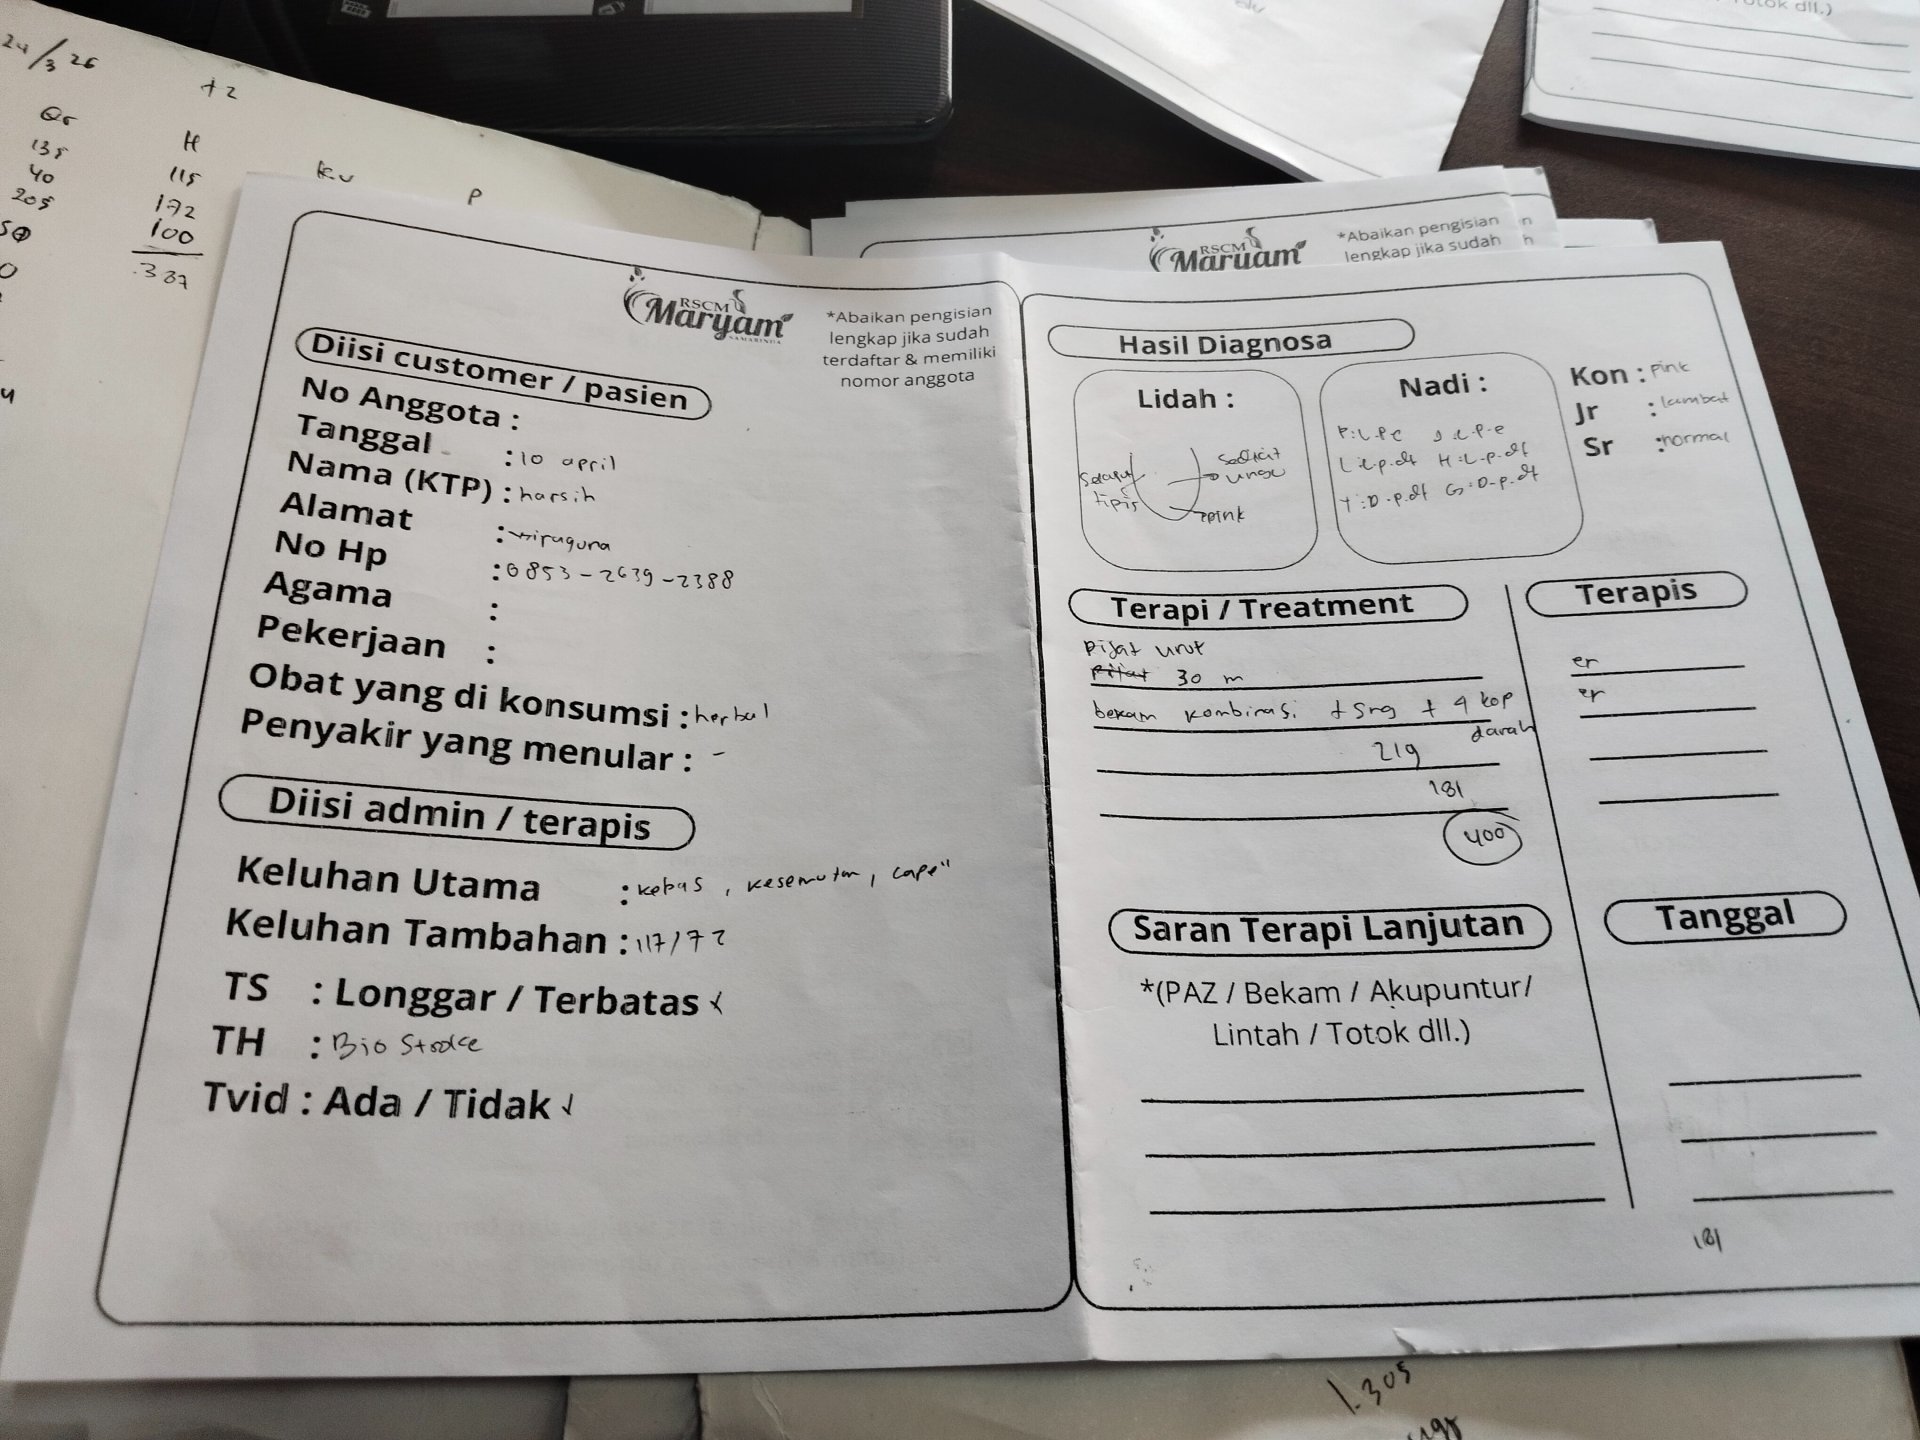 24/3 26
+2
Qr
H
135
115
40
172
205
100
387
P
RSCM
Maryam
SAMARINDA
*Abaikan pengisian
lengkap jika sudah
terdaftar & memiliki
nomor anggota
Diisi customer / pasien
No Anggota :
Tanggal : 10 april
Nama (KTP) : harsih
Alamat : wiraguna
No Hp : 0853-2639-2388
Agama :
Pekerjaan :
Obat yang di konsumsi : herbal
Penyakir yang menular : -
Diisi admin / terapis
Keluhan Utama : kebas, kesemutan, cape"
Keluhan Tambahan : 117/72
TS : Longgar / Terbatas
TH : Bio
Tvid : Ada / Tidak ✓
RSCM
Maryam
*Abaikan pengisian
lengkap jika sudah
Hasil Diagnosa
Lidah :
tipis
ungu
pink
Nadi :
L:L.p.dt H:L.p.dt
Y:D.p.dt G:D.p.dt
Kon : pink
Jr : lambat
Sr : normal
Terapi / Treatment
Pijat urut
30 m
bekam kombinasi + 4 kop
darah
219
181
400
Terapis
er
er
Saran Terapi Lanjutan
*(PAZ / Bekam / Akupuntur/
Lintah / Totok dll.)
Tanggal
181
1.305